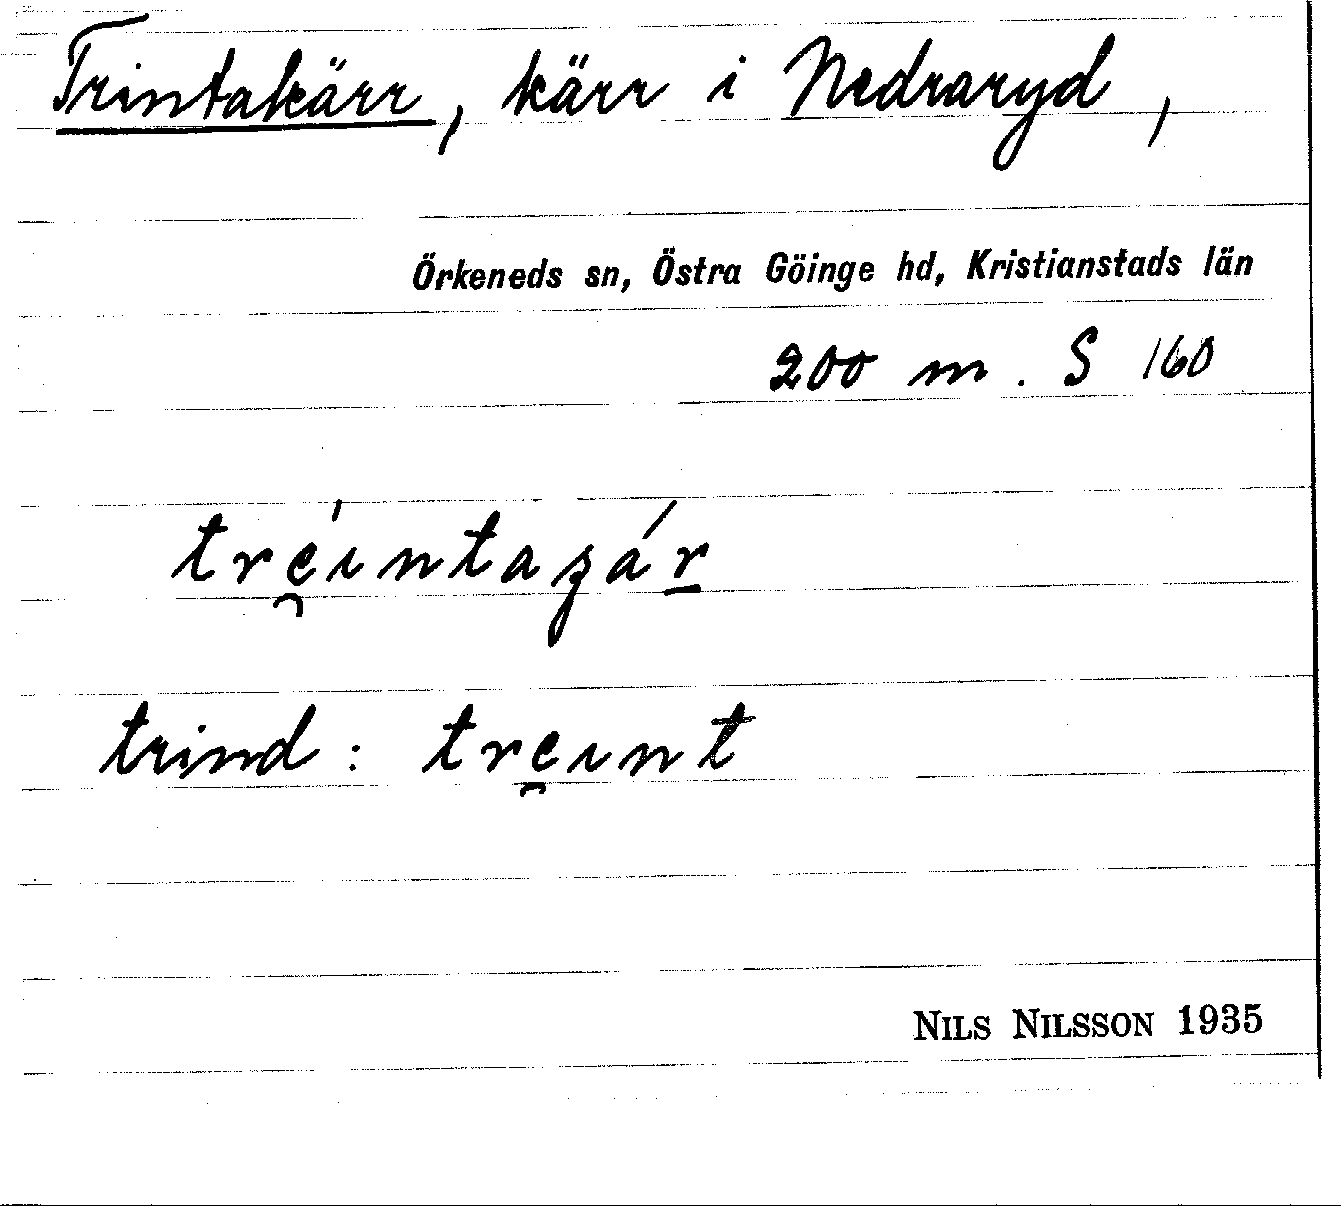 Trintakärr, kärr i Nedraryd,
Örkeneds sn, Östra Göinge hd, Kristianstads län
200 m. S 160
trę́ıntaʒár
trind: tręınt
NILS NILSSON 1935